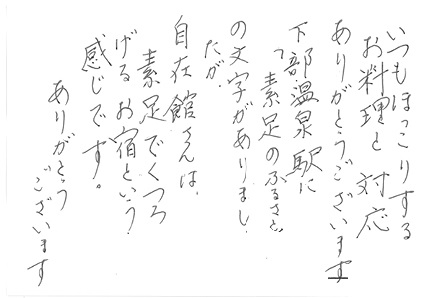 いつもほっこりする
お料理と対応
ありがとうございます
下部温泉駅に
「素足のふるさと」
の文字がありまし
たが、
自在館さんは、
素足でくつろ
げるお宿という
感じです。
ありがとう
ございます